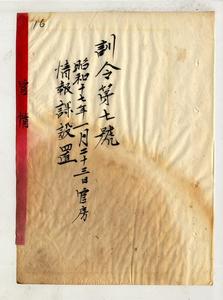 訓令第七號
昭和十七年一月二十三日官房
情報課設置
16
官情